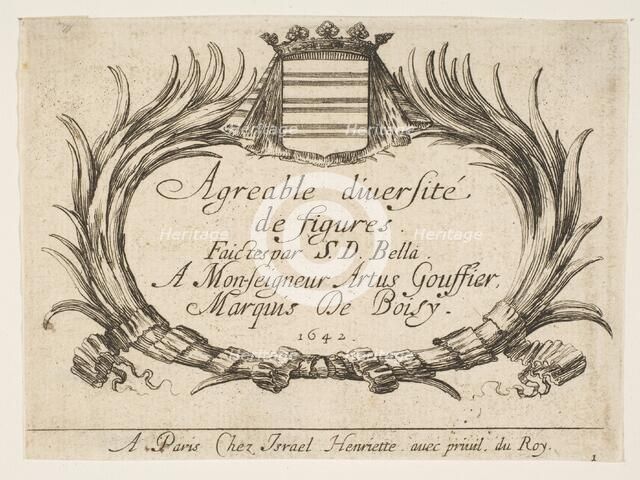 Agreable diuersité
de figures.
Faictes par S. D. Bella.
A Mon-seigneur Artus Gouffier,
Marquis De Boisy.
1642.
A Paris Chez Israel Henriette auec priuil. du Roy.
1
Heritage
Heritage
Heritage
Heritage
Heritage
Heritage